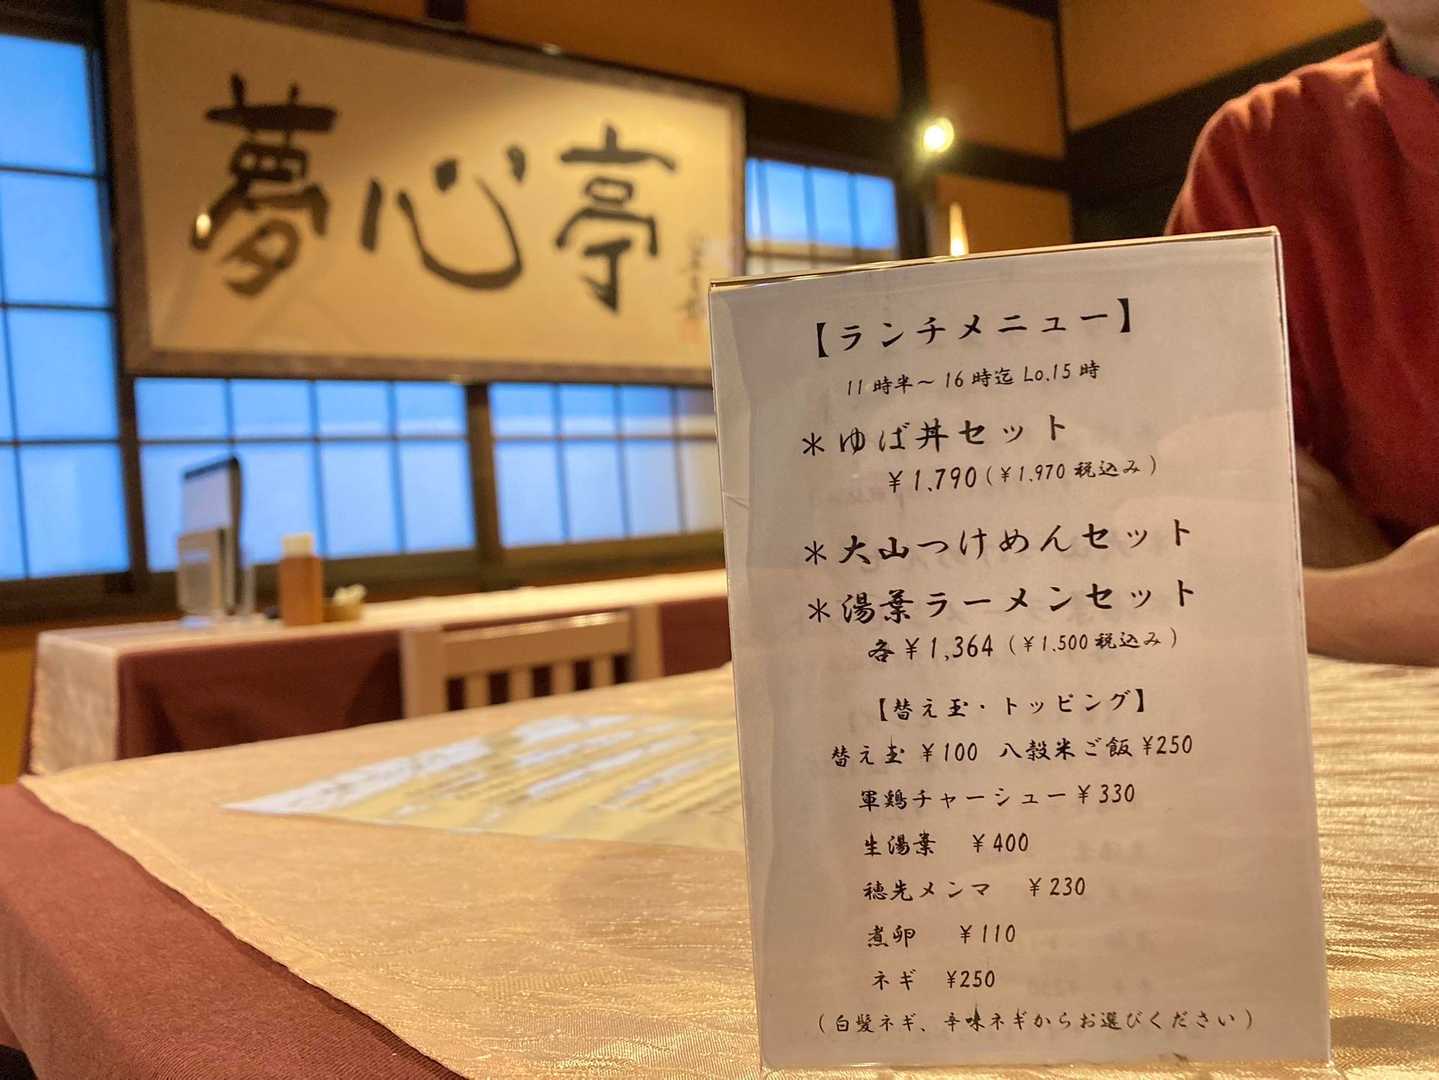 夢心亭
【ランチメニュー】
11時半～16時迄 Lo.15時
＊ゆば丼セット
￥1,790(￥1,970税込み)
＊大山つけめんセット
＊湯葉ラーメンセット
各￥1,364(￥1,500税込み)
【替え玉・トッピング】
替え玉 ￥100 八穀米ご飯 ¥250
軍鶏チャーシュー￥330
生湯葉 ￥400
穂先メンマ ￥230
煮卵 ￥110
ネギ ¥250
(白髪ネギ、辛味ネギからお選びください)